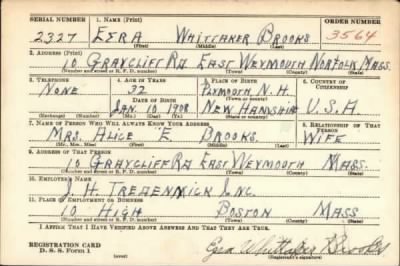 SERIAL NUMBER 1. NAME (Print) ORDER NUMBER
2327 EZRA WHITTAKER BROOKS 3564
(First) (Middle) (Last)
2. ADDRESS (Print)
10 GRAYCLIFF RD EAST WEYMOUTH NORFOLK MASS.
(Number and street or R. F. D. number) (Town) (County) (State)
3. TELEPHONE 4. AGE IN YEARS 5. PLACE OF BIRTH 6. COUNTRY OF CITIZENSHIP
NONE 32 PLYMOUTH, N.H.
DATE OF BIRTH (Town or county)
JAN. 10 1908 NEW HAMPSHIRE U.S.A
(Exchange) (Number) (Mo.) (Day) (Yr.) (State or country)
7. NAME OF PERSON WHO WILL ALWAYS KNOW YOUR ADDRESS 8. RELATIONSHIP OF THAT PERSON
MRS. ALICE E. BROOKS. WIFE
(Mr., Mrs., Miss) (First) (Middle) (Last)
9. ADDRESS OF THAT PERSON
10 GRAYCLIFF RD EAST WEYMOUTH MASS.
(Number and street or R. F. D. number) (Town) (County) (State)
10. EMPLOYER'S NAME
J. H. INC.
11. PLACE OF EMPLOYMENT OR BUSINESS
10 HIGH BOSTON MASS
(Number and street or R. F. D. number) (Town) (County) (State)
I AFFIRM THAT I HAVE VERIFIED ABOVE ANSWERS AND THAT THEY ARE TRUE.
REGISTRATION CARD
D. S. S. Form 1 Ezra Whittaker Brooks
(Registrant's signature)